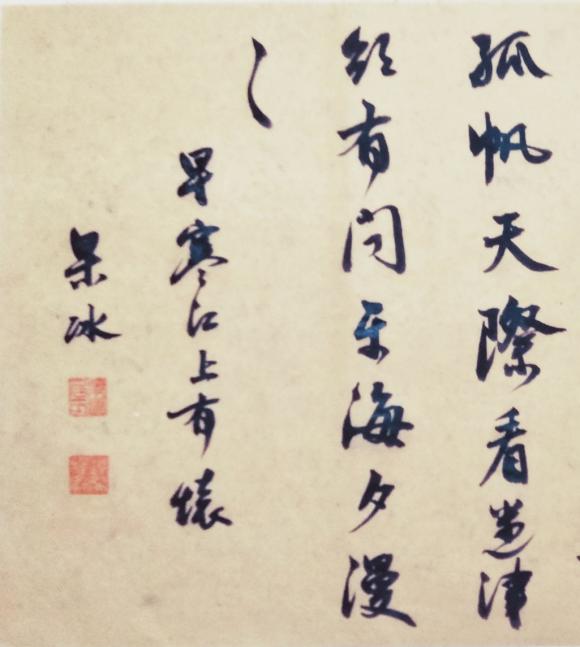 孤帆天際看迷津
欲有問平海夕漫
〻
早寒江上有懷
冰